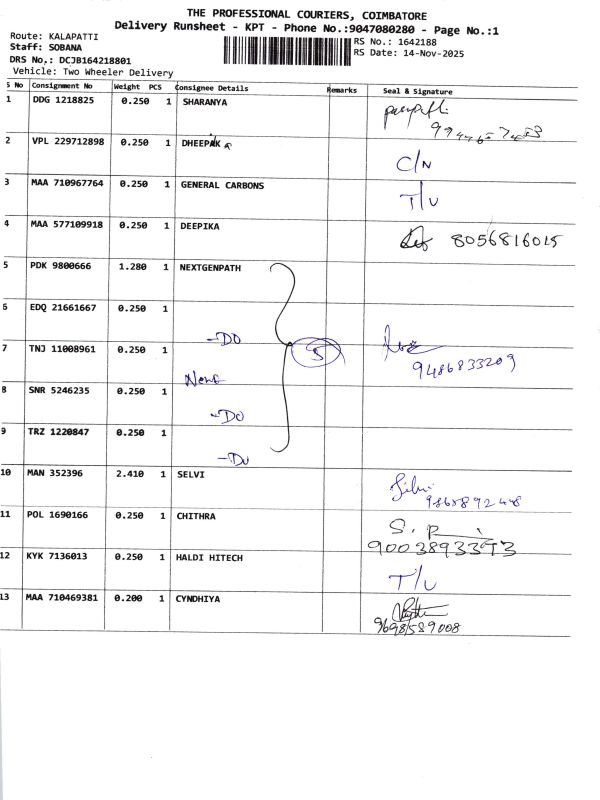 THE PROFESSIONAL COURIERS, COIMBATORE
Delivery Runsheet - KPT - Phone No.:9047080280 - Page No.:1
Route: KALAPATTI
Staff: SOBANA
DRS No,: DCJB164218801
Vehicle: Two Wheeler Delivery
RS No.: 1642188
RS Date: 14-Nov-2025
S No Consignment No Weight PCS Consignee Details Remarks Seal & Signature
1 DDG 1218825 0.250 1 SHARANYA
2 VPL 229712898 0.250 1 DHEEPAK C/N
3 MAA 710967764 0.250 1 GENERAL CARBONS T/U
4 MAA 577109918 0.250 1 DEEPIKA 8056816015
5 PDK 9800666 1.280 1 NEXTGENPATH
6 EDQ 21661667 0.250 1
-DO
7 TNJ 11008961 0.250 1 5 9486833209
8 SNR 5246235 0.250 1
-DO
9 TRZ 1220847 0.250 1
-DO
10 MAN 352396 2.410 1 SELVI
11 POL 1690166 0.250 1 CHITHRA
12 KYK 7136013 0.250 1 HALDI HITECH T/U
13 MAA 710469381 0.200 1 CYNDHIYA
9698589008